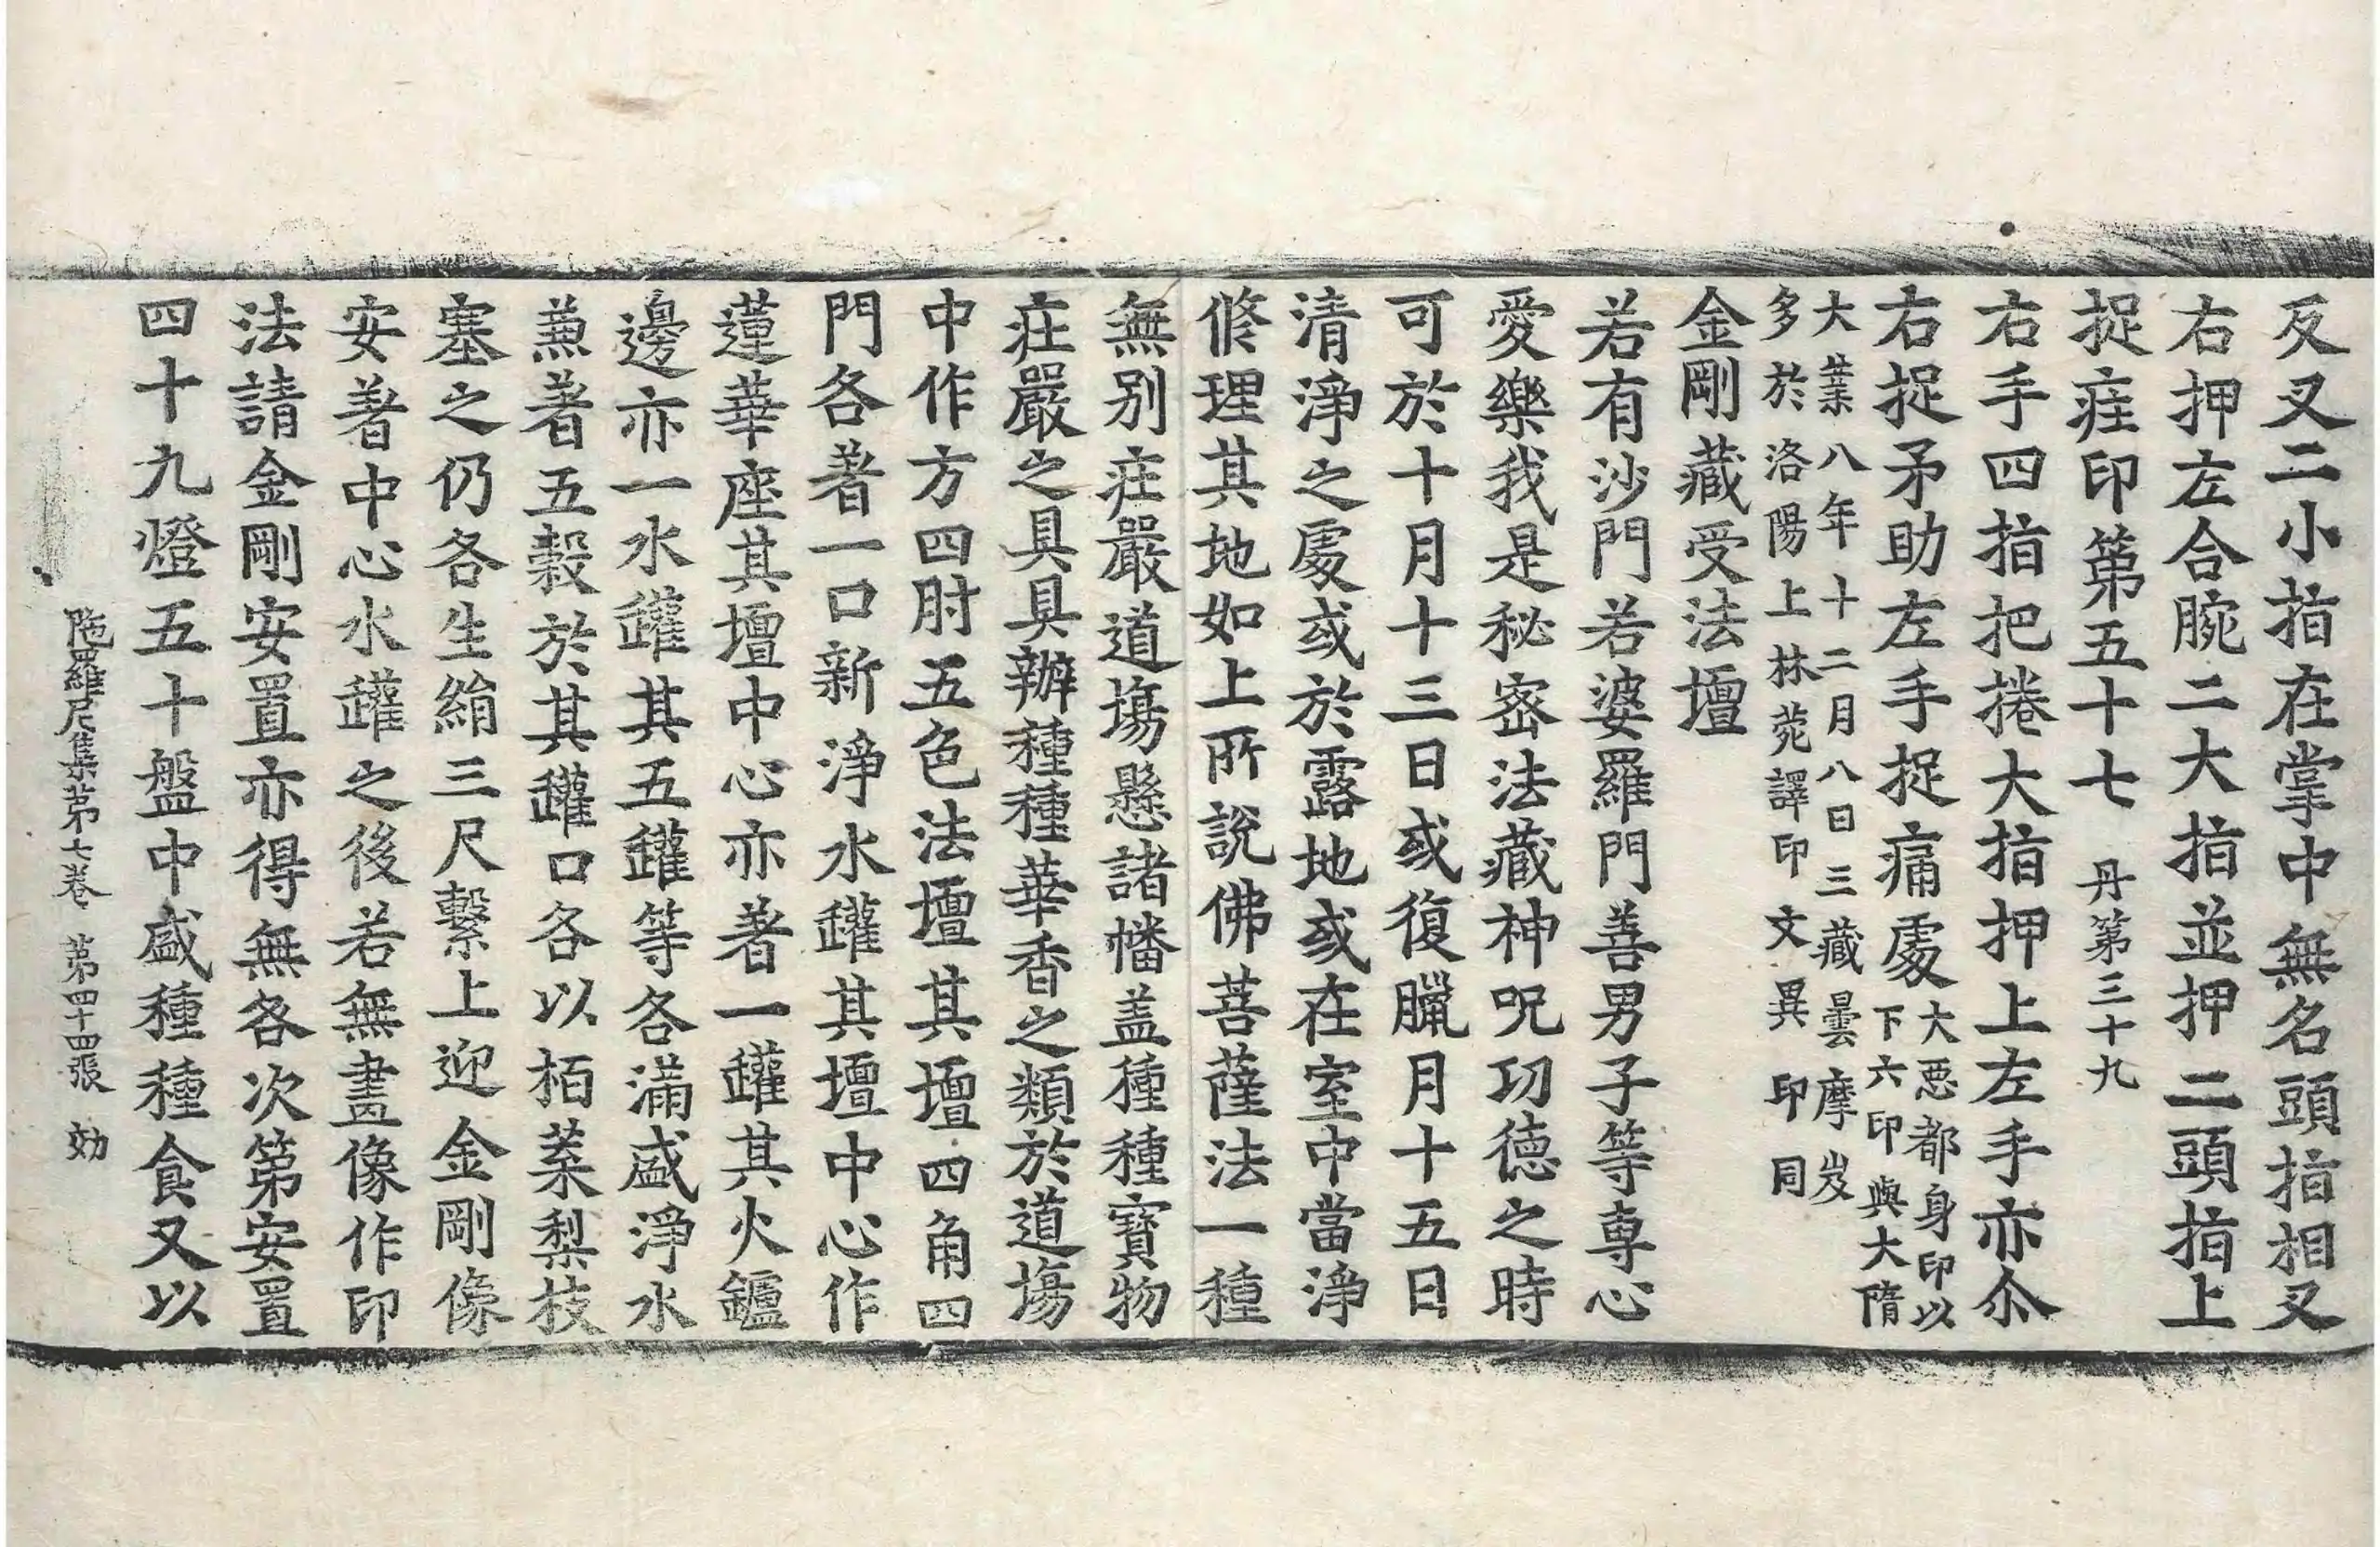 反叉二小指在掌中無名頭指相叉
右押左合腕二大指並押二頭指上
捉痓印第五十七 丹第三十九
右手四指把捲大指押上左手亦尒
右捉矛助左手捉痛處大惡都身印以
下六印與大隋
大業八年十二月八日三藏曇摩岌
多於洛陽上林苑譯印文異印同
金剛藏受法壇
若有沙門若婆羅門善男子等專心
愛樂我是秘密法藏神呪功德之時
可於十月十三日或復臘月十五日
清淨之處或於露地或在室中當淨
修理其地如上所說佛菩薩法一種
無別莊嚴道場懸諸幡盖種種寶物
莊嚴之具具辦種種華香之類於道場
中作方四肘五色法壇其壇四角四
門各著一口新淨水罐其壇中心作
蓮華座其壇中心亦著一罐其火鑪
邊亦一水罐其五罐等各滿盛淨水
兼著五穀於其罐口各以栢葉梨枝
塞之仍各生絹三尺繫上迎金剛像
安著中心水罐之後若無畫像作印
法請金剛安置亦得無各次第安置
四十九燈五十盤中盛種種食又以
陁羅尼集第七卷 第四十四張 効